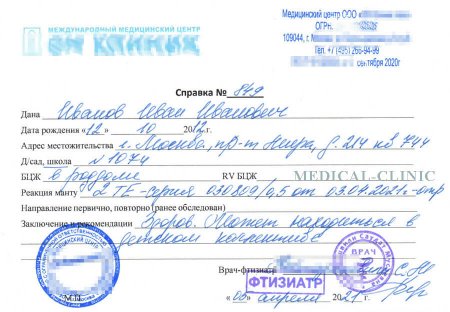 МЕЖДУНАРОДНЫЙ МЕДИЦИНСКИЙ ЦЕНТР
ОН КЛИНИК
Медицинский центр ООО
ОГРН
109044, г.
Тел. +7 (495) 266-94-99
сентября 2020г
Справка № 849
Дана Иванов Иван Иванович
Дата рождения «12» 10 2012г.
Адрес местожительства г. Москва, пр-т Мира, д. 214 кв 744
Д/сад, школа N 1074
MEDICAL-CLINIC
БЦЖ в роддоме RV БЦЖ
Реакция манту 2 ТЕ-серия 030809/0,5 от 03.04.2021г.-отр
Направление первично, повторно (ранее обследован)
Заключение и рекомендации Здоров. Может находиться в
детском коллективе
Врач-фтизиатр
ВРАЧ
ФТИЗИАТР
М.П.
«06» апреля 2021г.